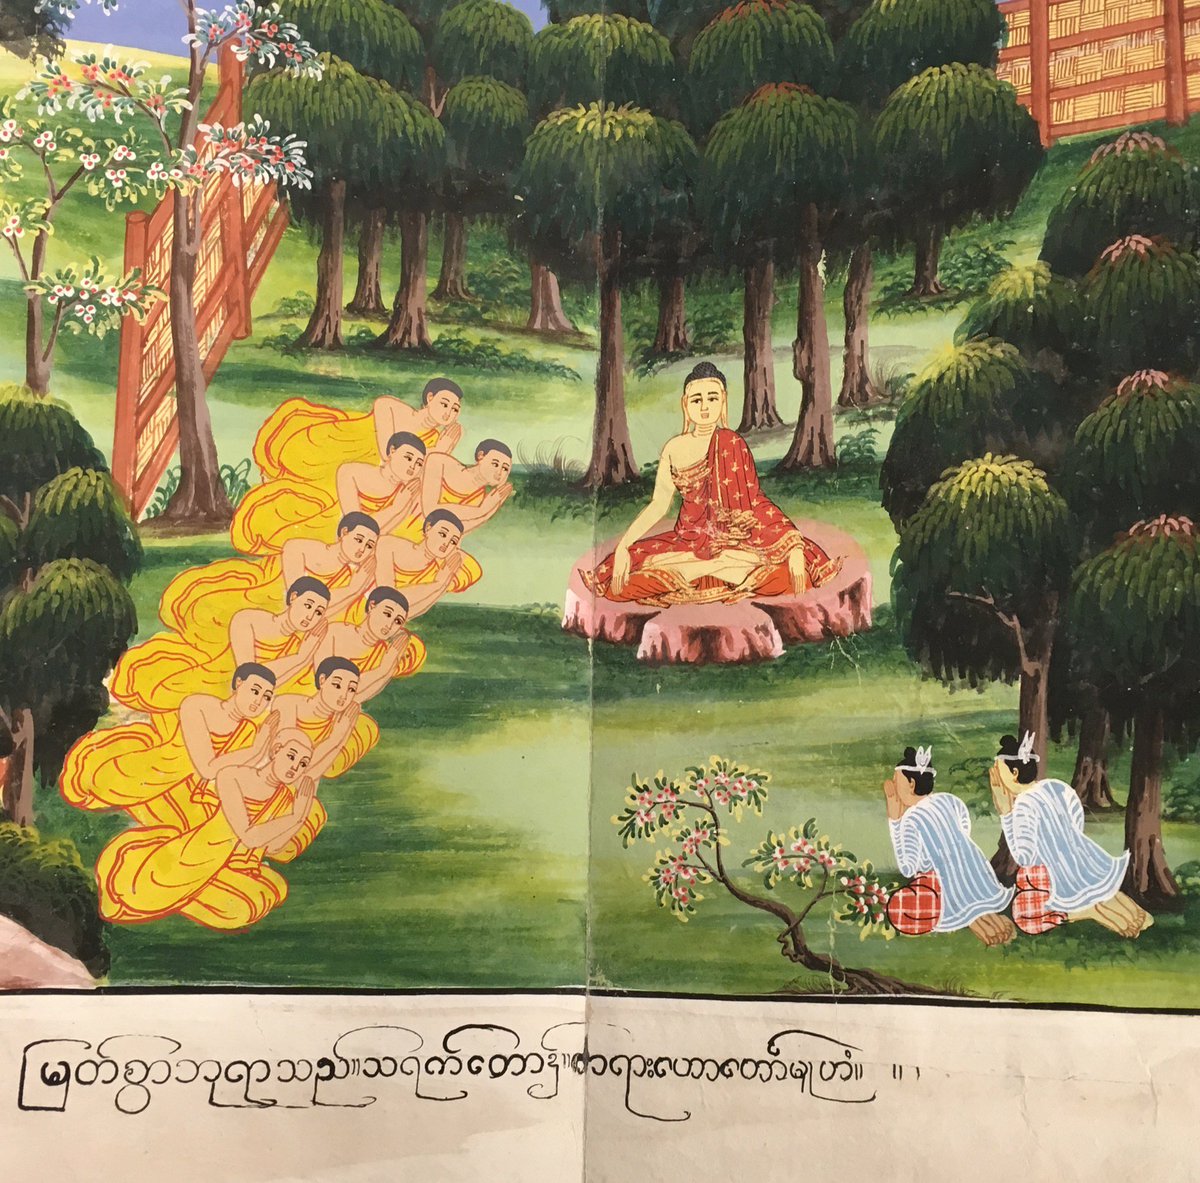 မြတ်စွာဘုရာသည်။သရက်တော၌။တရားဟောတော်မူဟံ။ ။